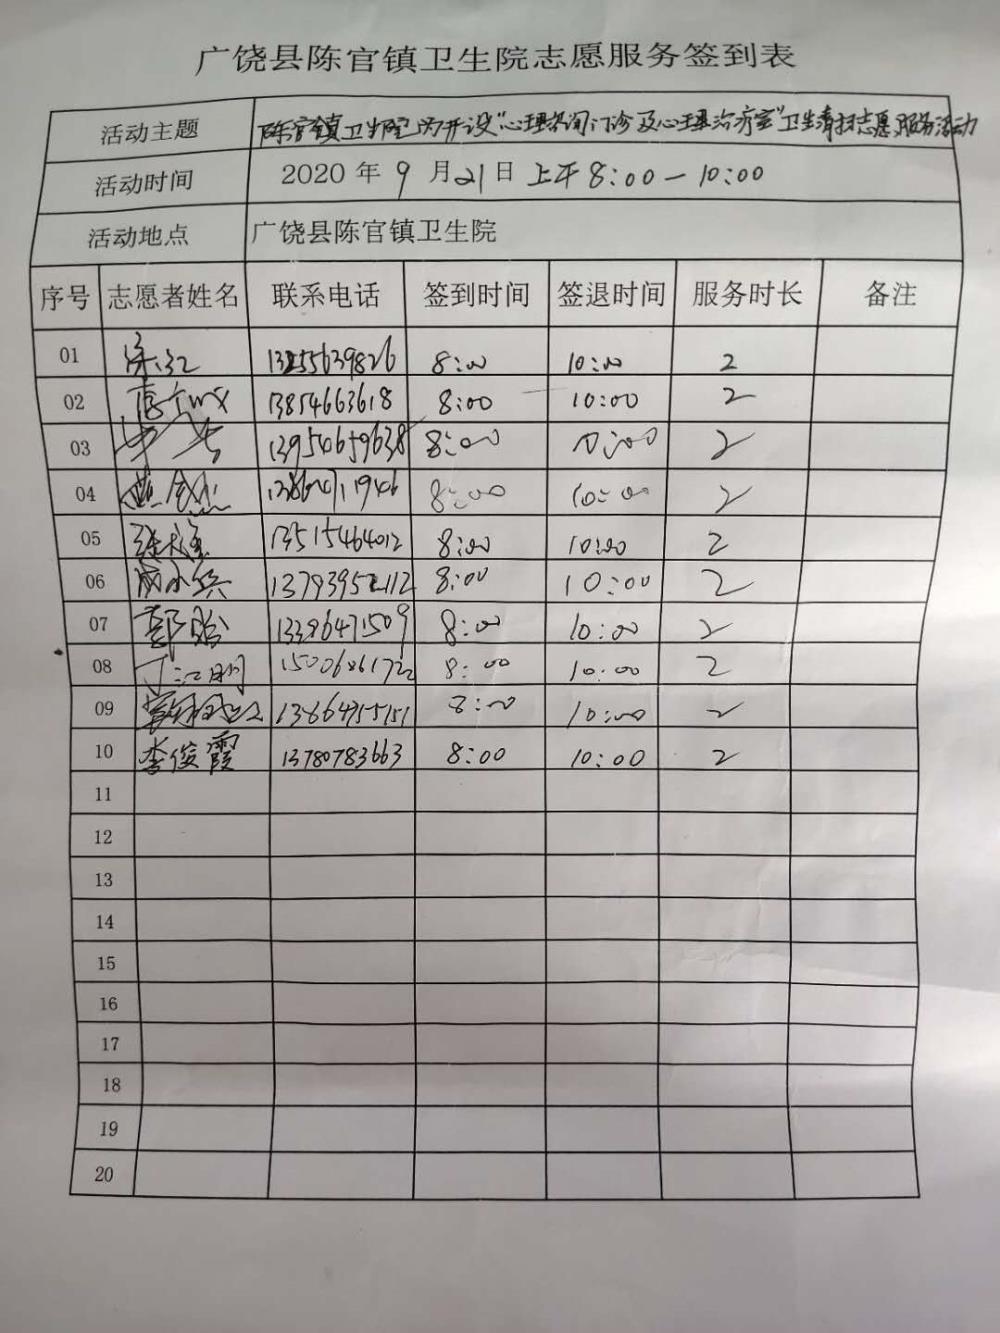 广饶县陈官镇卫生院志愿服务签到表
活动主题 陈官镇卫生院为开设"心理咨询门诊及心理治疗室"卫生清扫志愿服务活动
活动时间 2020 年 9 月 21 日 上午 8:00-10:00
活动地点 广饶县陈官镇卫生院
序号 志愿者姓名 联系电话 签到时间 签退时间 服务时长 备注
01 13255639826 8:00 10:00 2
02 13854663618 8:00 10:00 2
03 13954659638 8:00 10:00 2
04 8:00 10:00 2
05 13515464012 8:00 10:00 2
06 成小兵 13793952112 8:00 10:00 2
07 郭贻 13396471509 8:00 10:00 2
08 丁江明 8:00 10:00 2
09 8:00 10:00 2
10 李俊霞 13780783663 8:00 10:00 2
11
12
13
14
15
16
17
18
19
20